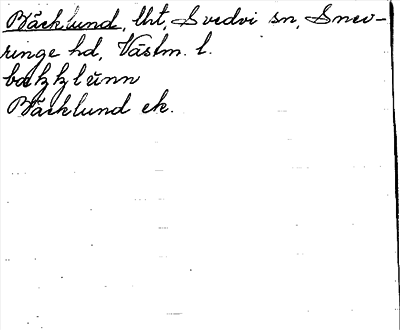 Bäcklund, lht, Svedvi sn, Snev-
ringe hd, Västm. l.
bækklùnn
Bäcklund ek.